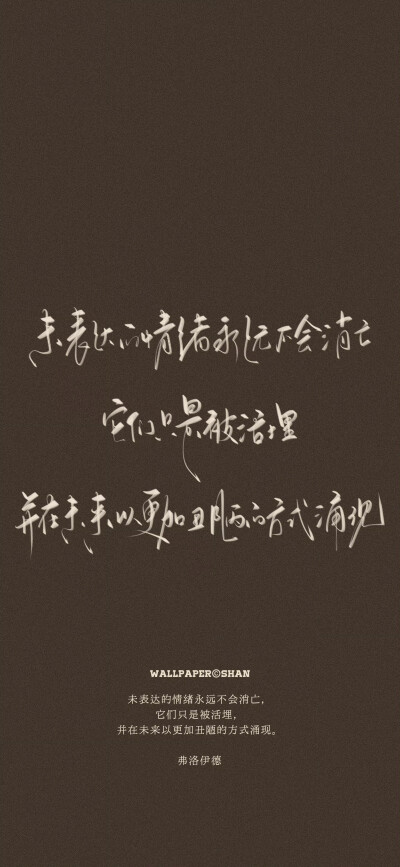 未表达的情绪永远不会消亡
它们只是被活埋
并在未来以更加丑陋的方式涌现
WALLPAPER©SHAN
未表达的情绪永远不会消亡，
它们只是被活埋，
并在未来以更加丑陋的方式涌现。
弗洛伊德